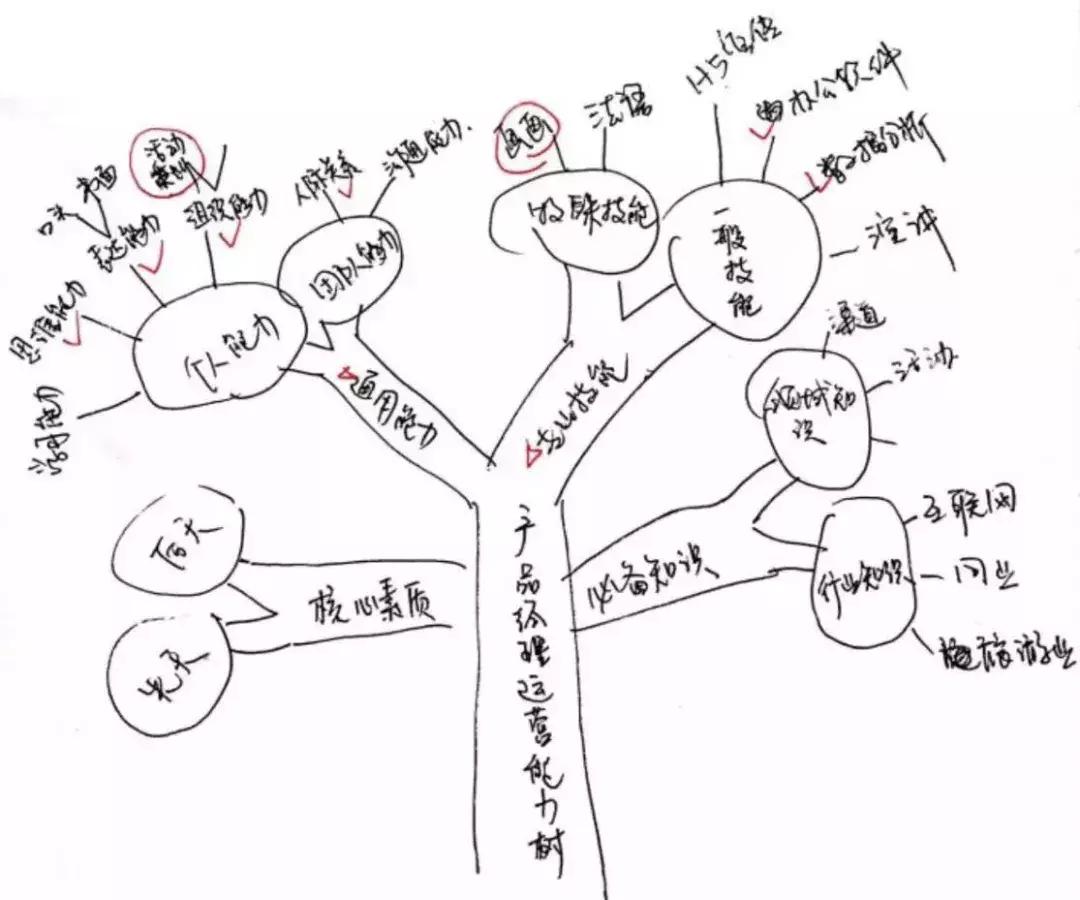 H5
办公软件
数据分析
演讲
一般技能
法语
画画
特殊技能
专业技能
沟通能力
人际关系
团队能力
活动
策划
组织能力
书面
口头
表达能力
思维能力
学习能力
个人能力
通用能力
渠道
活动
领域知
识
互联网
旅游业
行业知识
必备知识
后天
先天
核心素质
产品经理运营能力树